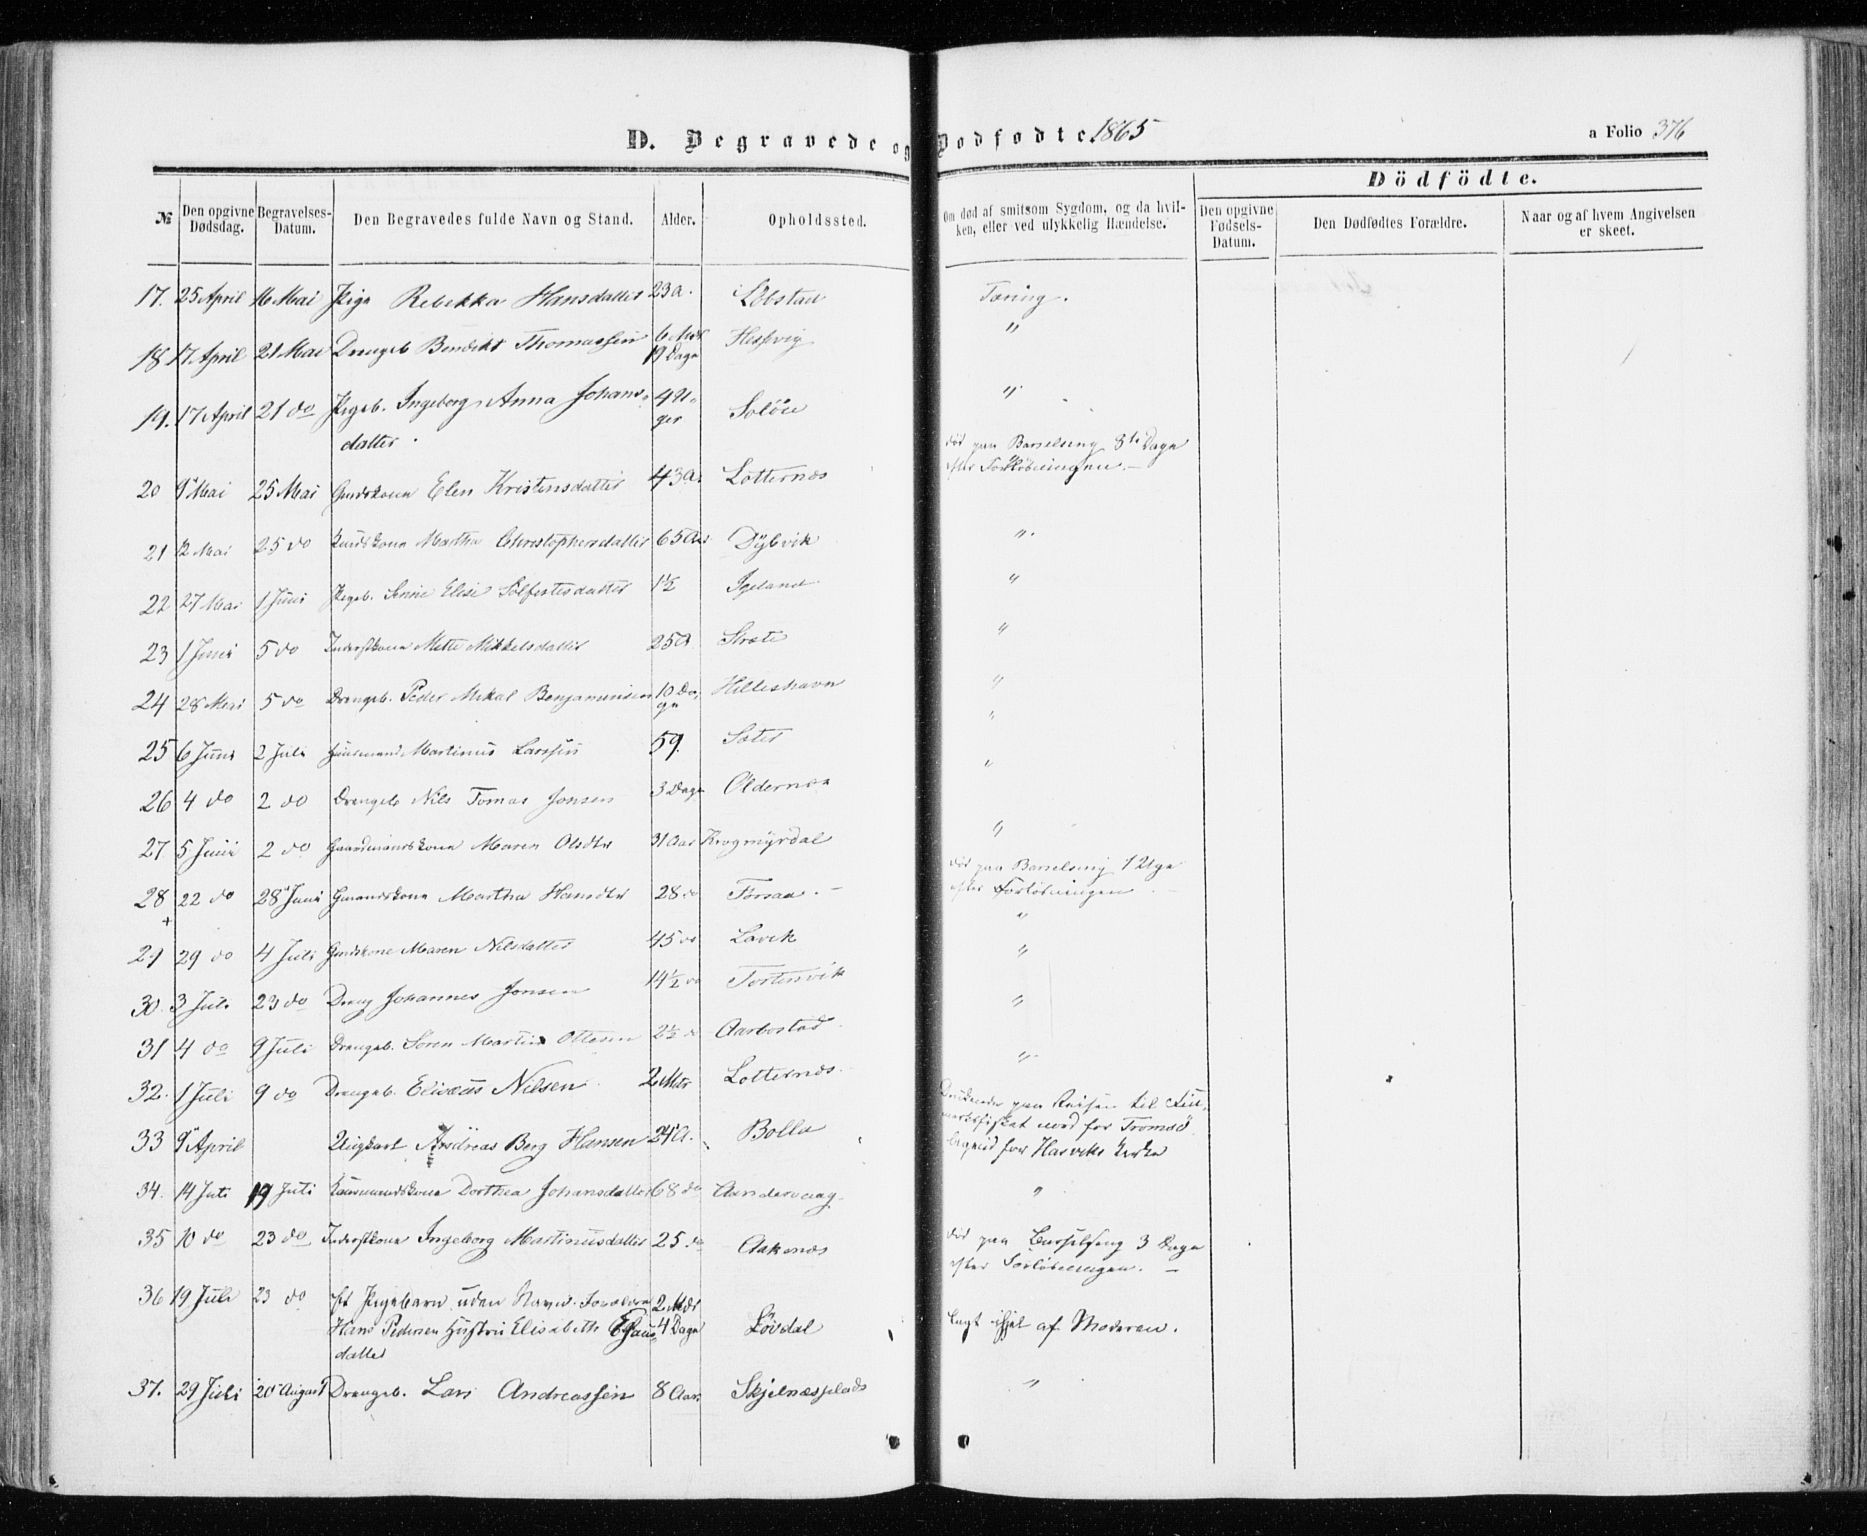 D. Begravede og Dødfødte. 1865
a Folio 376
Dödfödte.
№ Den opgivne Dødsdag. Begravelses-Datum. Den Begravedes fulde Navn og Stand. Alder. Opholdssted. Om død af smitsom Sygdom, og da hvilken, eller ved ulykkelig Hændelse. Den opgivne Fødsels-Datum. Den Dødfødtes Forældre. Naar og af hvem Angivelsen er skeet.
17. 25 April 16 Mai Pige Rebekka Hansdatter 23 a. Løbstad Tæring.
18 17 April 21 Mai Drengeb Bendikt Thomassen 6 Mdr 19 Dage Hessvig "
19. 17 April 21 do Pigeb. Ingeborg Anna Johans-
datter 4 U-ger Soløie "
20 9 Mai 25 Mai Gmdskone Elen Kristensdatter 43 a. Lotternæs død paa Barselseng 8te Dage
efter Forløsningen.
21 12 Mai 25 do Martha Christophersdatter 65 Aar Dybvik "
22 27 Mai 1 Juni Pigeb. Elise 1½ Igeland "
23 1 Juni 5 do Inderstkone Mette Mikkelsdatter 25 a Stræte "
24 28 Mai 5 do Drengeb. Peder Mikal Benjaminsen 10 Da-ge Hilleshavn "
25 6 Juni 2 Juli Huusmand Martinus Larssen 59. Sæter "
26 4 do 2 do Drengeb Nils Tomas Jonsen 3 Dage Oldernæs "
27 5 Juni 2 do Gaardmandskone Maren Olsdtr 31 Aar Krogmyrdal "
28 22 do 28 Juni Gmandskone Martha Hansdtr 28 do Forsaa død paa Barselseng 1 Uge
efter Forløsningen
29 29 do 4 Juli Gmdskone Maren Nilsdatter 45 do Lavik "
30. 3 Juli 23 do Dreng Johannes Jonsen 14½ do Tortensvik "
31 4 do 9 Juli Drengeb. Sören Martin Ottesen 2½ do Aarbostad "
32. 1 Juli 9 do Drengeb. Elisæus Nilsen 2 Mdr Lotternæs "
33 9 April Ungkarl Andreas Berg Hansen 24 A. Bolla Druknede paa Reisen til Fin-
markfisket nord for Tromsö
begravd hos Hasviks Kirke
34. 14 Juli 19 Juli Dorthea Johansdatter 68 do Aandervaag "
35 10 do 23 do Inderstkone Ingeborg Martinusdatter 25 do Aakenæs død paa Barselseng 3 Dage
efter Forløsningen.
36 19 Juli 23 do et Pigebarn uden Navn. Forældre 2 Mdr
Hans Pedersen Hustru Elisabeth Efraims- 4 Dage Lövdal lagt ihjel af Moderen.
datter
37. 29 Juli 20 August Drengeb. Lars Andreassen 8 Aar Skjelnæsplads "